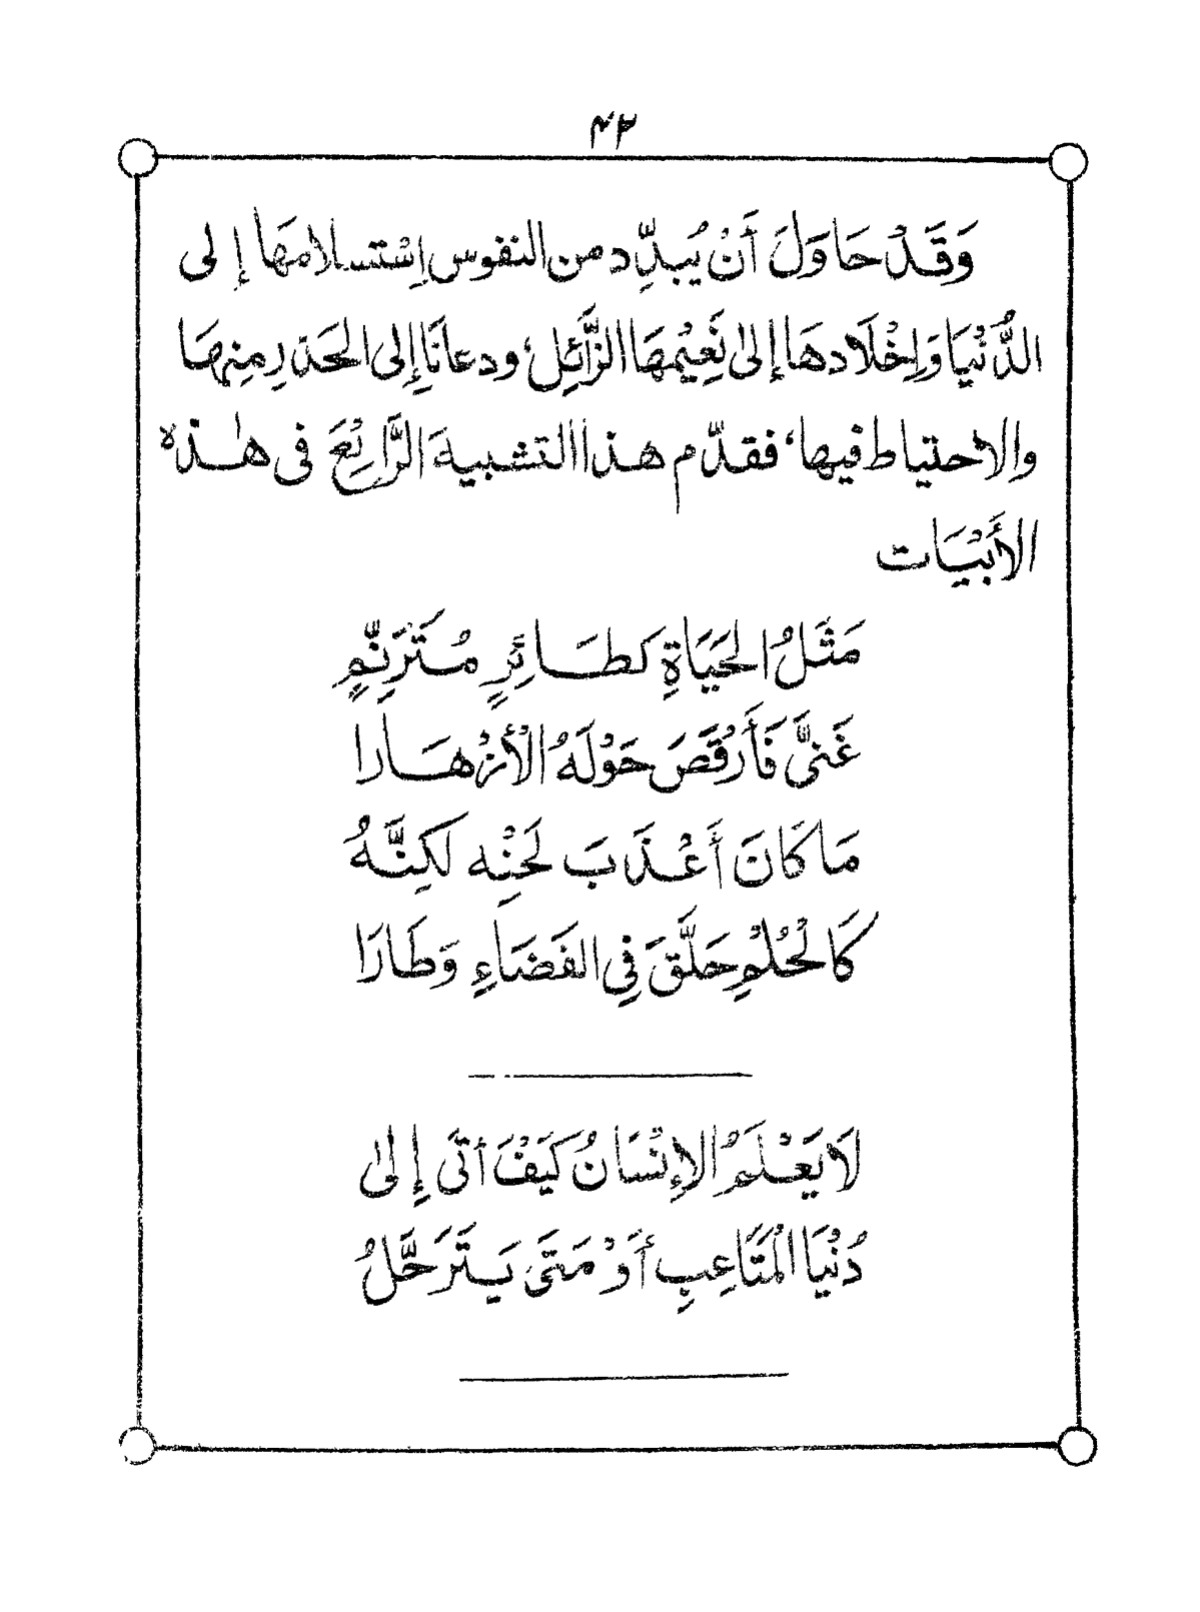 ٤٢
وَقَدْ حَاوَلَ أَنْ يُبدِّد من النفوس إِسْتسلامهَا إلى
الدُّنْيَا وَإِخْلَادهَا إلىٰ نَعِيْمهَا الزَّائِلِ، ودعانَا إِلى الحَذرِ مِنهَا
والاحتياط فيها، فقدّم هـذا التشبيهَ الرَّائِعَ فى هـٰذه
الأَبْيَات
مَثَلُ الحَيَاةِ كَطَـائِرٍ مُـتَرَنِّمٍ
غَنىَّ فَأَرْقَصَ حَوْلَهُ الْأَزْهَـارا
مَا كَانَ أَعْذَبَ لَحنِْه لَكِنَّـهُ
كَالْحُلْمِ حَلَّقَ فِي الفَضَاءِ وَطَارَا
لَا يَعْـلَمُ الإِنْسَانُ كَيْفَ أتَى إِلىٰ
دُنْيَا الْمَتَاعِبِ أَوْ مَتَى يَـتَرَحَّلُ